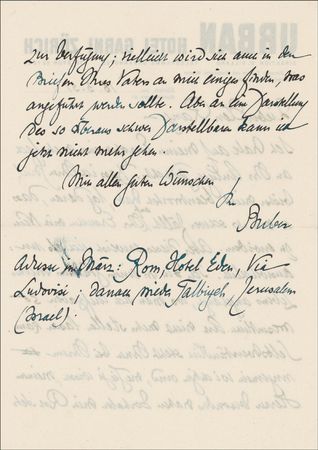 zur Verfügung; vielleicht wird sich auch in den
Briefen Ihres Vaters an mich einiges finden, was
angeführt werden sollte. Aber an eine Darstellung
des so überaus schwer Darstellbaren kann ich
jetzt nicht mehr gehen.
Mit allen guten Wünschen
Ihr
Buber
Adresse im März: Rom, Hotel Eden, Via
Ludovisi; danach wieder Talbiyeh, Jerusalem
(Israel).